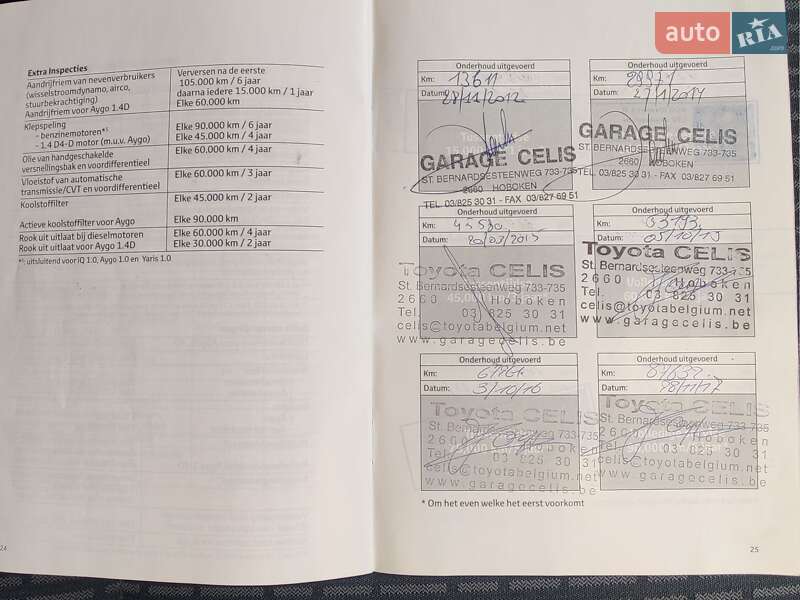 auto RIA .com
Extra Inspecties
Aandrijfriem van nevenverbruikers
(wisselstroomdynamo, airco,
stuurbekrachtiging)
Aandrijfriem voor Aygo 1.4D
Verversen na de eerste
105.000 km / 6 jaar
daarna iedere 15.000 km / 1 jaar
Elke 60.000 km
Klepspeling
- benzinemotoren*¹
- 1.4 D4-D motor (m.u.v. Aygo)
Elke 90.000 km / 6 jaar
Elke 45.000 km / 4 jaar
Olie van handgeschakelde
versnellingsbak en voordifferentieel
Elke 60.000 km / 4 jaar
Vloeistof van automatische
transmissie/CVT en voordifferentieel
Elke 60.000 km / 3 jaar
Koolstoffilter
Elke 45.000 km / 2 jaar
Actieve koolstoffilter voor Aygo
Elke 90.000 km
Rook uit uitlaat bij dieselmotoren
Rook uit uitlaat voor Aygo 1.4D
Elke 60.000 km / 4 jaar
Elke 30.000 km / 2 jaar
*¹: uitsluitend voor iQ 1.0, Aygo 1.0 en Yaris 1.0
24
Onderhoud uitgevoerd
Km: 13611
Datum: 28/11/2012
GARAGE CELIS
ST. BERNARDSESTEENWEG 733-735
2660 HOBOKEN
TEL. 03/825 30 31 - FAX 03/827 69 51
Onderhoud uitgevoerd
Km:
Datum: 27/1/2014
GARAGE CELIS
ST. BERNARDSESTEENWEG 733-735
2660 HOBOKEN
TEL. 03/825 30 31 - FAX 03/827 69 51
Onderhoud uitgevoerd
Km: 45530
Datum: 20/03/2015
Toyota CELIS
St. Bernardsesteenweg 733-735
2660 Hoboken
Tel. 03 825 30 31
celis@toyotabelgium.net
www.garagecelis.be
Onderhoud uitgevoerd
Km:
Datum: 05/10/15
Toyota CELIS
St. Bernardsesteenweg 733-735
2660 Hoboken
Tel. 03 825 30 31
celis@toyotabelgium.net
www.garagecelis.be
Onderhoud uitgevoerd
Km:
Datum: 3/10/16
Toyota CELIS
St. Bernardsesteenweg 733-735
2660 Hoboken
Tel. 03 825 30 31
celis@toyotabelgium.net
www.garagecelis.be
Onderhoud uitgevoerd
Km: 87632
Datum: 28/11/17
Toyota CELIS
St. Bernardsesteenweg 733-735
2660 Hoboken
Tel. 03 825 30 31
celis@toyotabelgium.net
www.garagecelis.be
* Om het even welke het eerst voorkomt
25